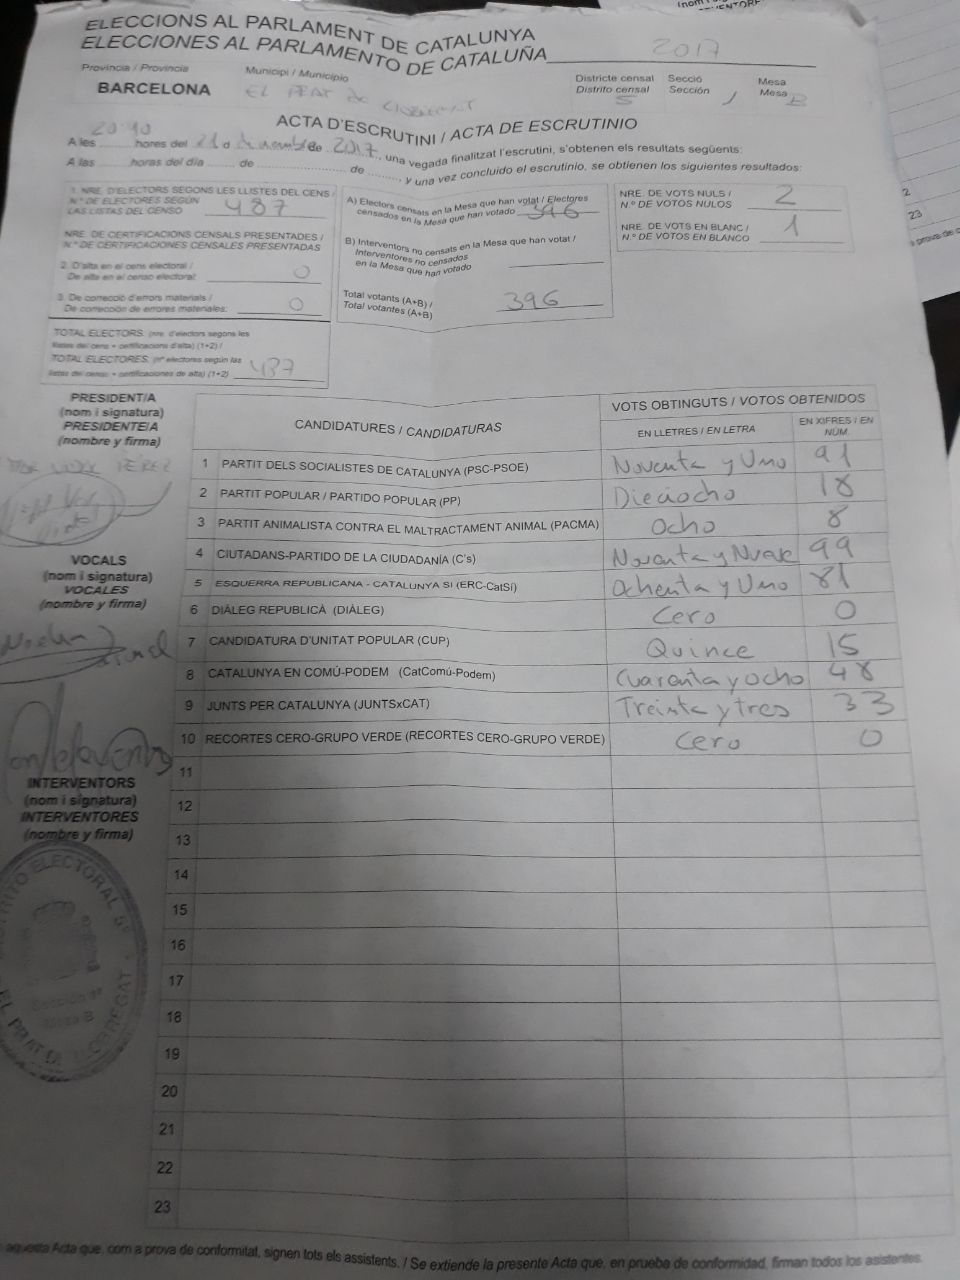 ELECCIONS AL PARLAMENT DE CATALUNYA
ELECCIONES AL PARLAMENTO DE CATALUÑA 2017
Província / Provincia
BARCELONA
Municipi / Municipio
EL PRAT de LLOBREGAT
Districte censal
Distrito censal
5
Secció
Sección
1
Mesa
Mesa B
ACTA D'ESCRUTINI / ACTA DE ESCRUTINIO
20:40
A les ........ hores del 21 d de 2017, una vegada finalitzat l'escrutini, s'obtenen els resultats següents:
A las ........ horas del día ........ de ........ de ........ y una vez concluido el escrutinio, se obtienen los siguientes resultados:
1. NRE. D'ELECTORS SEGONS LES LLISTES DEL CENS /
N.º DE ELECTORES SEGÚN
LAS LISTAS DEL CENSO 487
NRE. DE CERTIFICACIONS CENSALS PRESENTADES /
N.º DE CERTIFICACIONES CENSALES PRESENTADAS
2. D'alta en el cens electoral /
De alta en el censo electoral: 0
3. De correcció d'errors materials /
De corrección de errores materiales: 0
TOTAL ELECTORS: (nre. d'electors segons les
llistes del cens + certificacions d'alta) (1+2) /
TOTAL ELECTORES: (nº electores según las
listas del censo + certificaciones de alta) (1+2) 487
A) Electors censats en la Mesa que han votat / Electores
censados en la Mesa que han votado 396
B) Interventors no censats en la Mesa que han votat /
Interventores no censados
en la Mesa que han votado
Total votants (A+B) /
Total votantes (A+B) 396
NRE. DE VOTS NULS /
N.º DE VOTOS NULOS 2
NRE. DE VOTS EN BLANC /
N.º DE VOTOS EN BLANCO 1
PRESIDENT/A
(nom i signatura)
PRESIDENTE/A
(nombre y firma)
VOCALS
(nom i signatura)
VOCALES
(nombre y firma)
INTERVENTORS
(nom i signatura)
INTERVENTORES
(nombre y firma)
DISTRITO ELECTORAL 5º
Sección 1ª
Mesa B
EL PRAT DE LLOBREGAT
CANDIDATURES / CANDIDATURAS
VOTS OBTINGUTS / VOTOS OBTENIDOS
EN LLETRES / EN LETRA
EN XIFRES / EN
NÚM.
1 PARTIT DELS SOCIALISTES DE CATALUNYA (PSC-PSOE) Noventa y Uno 91
2 PARTIT POPULAR / PARTIDO POPULAR (PP) Dieciocho 18
3 PARTIT ANIMALISTA CONTRA EL MALTRACTAMENT ANIMAL (PACMA) Ocho 8
4 CIUTADANS-PARTIDO DE LA CIUDADANÍA (C's) Noventa y Nueve 99
5 ESQUERRA REPUBLICANA - CATALUNYA SÍ (ERC-CatSí) Ochenta y Uno 81
6 DIÀLEG REPUBLICÀ (DIÀLEG) Cero 0
7 CANDIDATURA D'UNITAT POPULAR (CUP) Quince 15
8 CATALUNYA EN COMÚ-PODEM (CatComú-Podem) Cuarenta y ocho 48
9 JUNTS PER CATALUNYA (JUNTSxCAT) Treinta y tres 33
10 RECORTES CERO-GRUPO VERDE (RECORTES CERO-GRUPO VERDE) Cero 0
11
12
13
14
15
16
17
18
19
20
21
22
23
aquesta Acta que, com a prova de conformitat, signen tots els assistents. / Se extiende la presente Acta que, en prueba de conformidad, firman todos los asistentes.